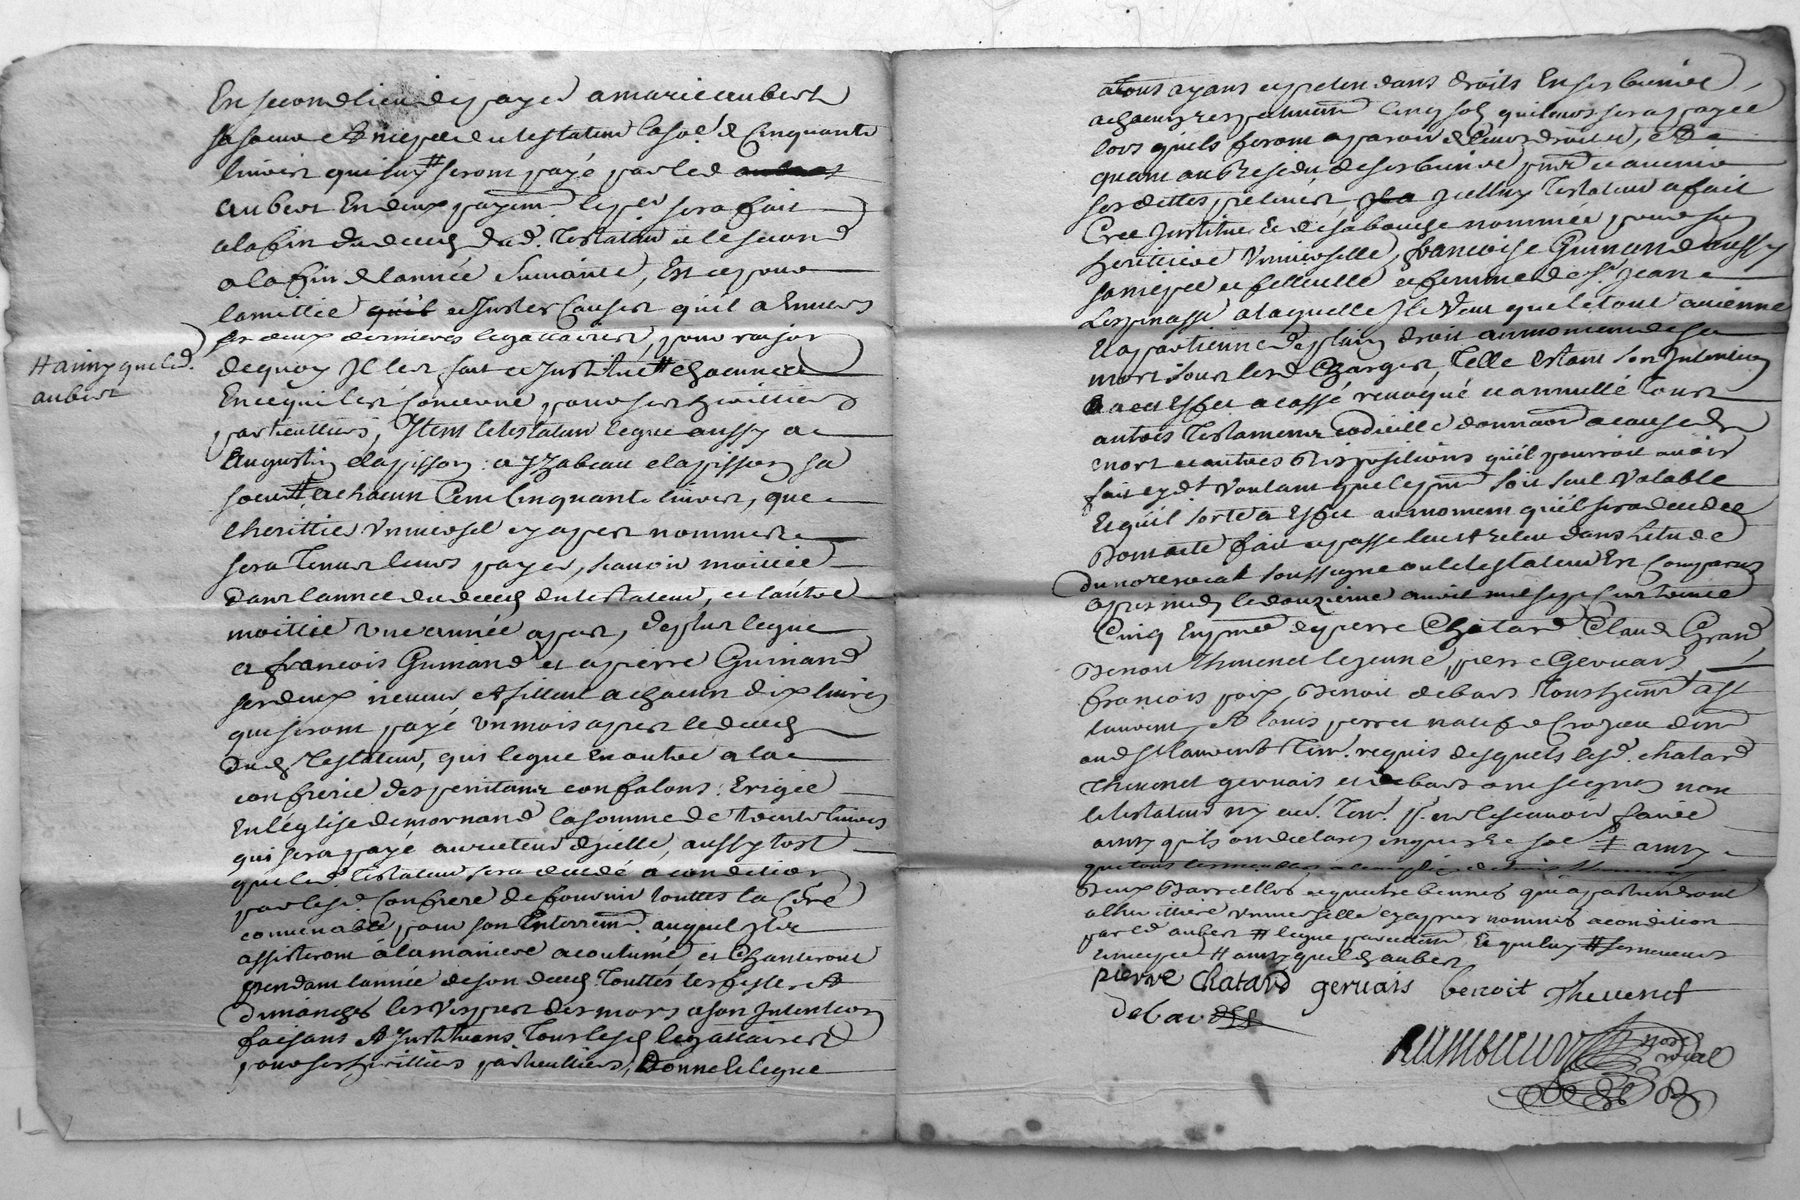 En second lieu de payer a marie aubert
sa soeur et niepce du testateur la so.e de Cinquante
livres qui luy # seront payé par led aubert
aubert En deux payem. le p.er sera fait
a la fin du deceds dud. Testateur et le second
a la fin de lannée Suivante, Et ce pour
lamittié qu'il et Justes Causes qu'il a Envers
ses deux dernieres legattaires, pour raison
de quoy Il les fait et Institue # chacunne
En ce qui les concerne pour ses heritiers
particulliers, Item le testateur legue aussy a
# ainsy que led.
aubert
Augustin clapisson et Izabeau clapisson sa
soeur # a chacun Cent Cinquante livres, que
lherittier universel cy apres nommée
sera Tenue leurs payer, scavoir moitiée
dans lannée du deceds du testateur, et lautre
moittié une année apres, de plus legue
a francois Guinand et a pierre Guinand
ses deux neveux et filleul a chacun dix livres
qui seront payé un mois apres le deceds
dud Testateur, qui legue en outre a la
confrerie des penitans confalons Erigée
En léglise de mornand la somme de trente livres
qui sera payé au recteur d'jcelle, aussy tost
que led. Testateur sera decedé a condition
par lesd Confrere de fournir touttes la Cire
convenable pour son Enterrem. auquel Ils
assisteront à la maniere acoutumé et Chanteront
pendant lannée de son deceds touttes les festes et
dimanches les vespres des morts a son Intention
faisans et Instituans Tous lesd legattaires
pour ses herittiers particulliers, donne et legue
a tous ayans et pretendans droits En ses biens
a chacun respectivem. Cinq sols qui leurs sera payée
lors quils feront aparoir de leurs droits, Et a
quant au Residu de ses biens pnt et avenir
ses dettes prelevés Icelluy Testateur a fait
Crée Institue et de sa bouche nommée pour son
heritiere Universelle, francoise Guinand aussy
sa niepce et filleulle et femme de s.r jean
Lespinasse a laquelle Il Veut que le tout avienne
Et apartienne de plain droit au moment de sa
mort sous lesd Charges, Telle Estant son Intention
a cet Effet a cassé revoqué et annullé Tous
autres Testaments codicille donnaon a cause de
mort et autres Dispositions qu'il pourroit avoir
fait cy d.t voulant que le pnt soit seul Valable
Et qu'il sorte a Effet au moment qu'il sera decedé
Dont acte fait et passé leu et releu dans letude
du no.re royal soussigne ou le testateur Est comparus
apres midy le douzieme avril mil sept cent trente
Cinq En pnce de pierre Chatard Claude Grand
Benoit Thevenet le jeune, pierre Gervais
francois paix, Benoit debard
laurent, et louis perret natif de
aud St laurent Tem. requis desquels lesd. chatard
Thevenet gervais et debard ont signés non
le testateur ny aut. Tem. p.r ne le scavoir faire
ainsy quils ont declarés enquis
Deux Barrelles et quatre bennes qu'apartiendront
a lherittiere universelle cy apres nommés a condition
par led aubert # legue pareillem. Et qui luy # ses neveux
et niepce # ainsy que led aubert
pierre Chatard gervais benoit Thevenet
debard
no.re
royal